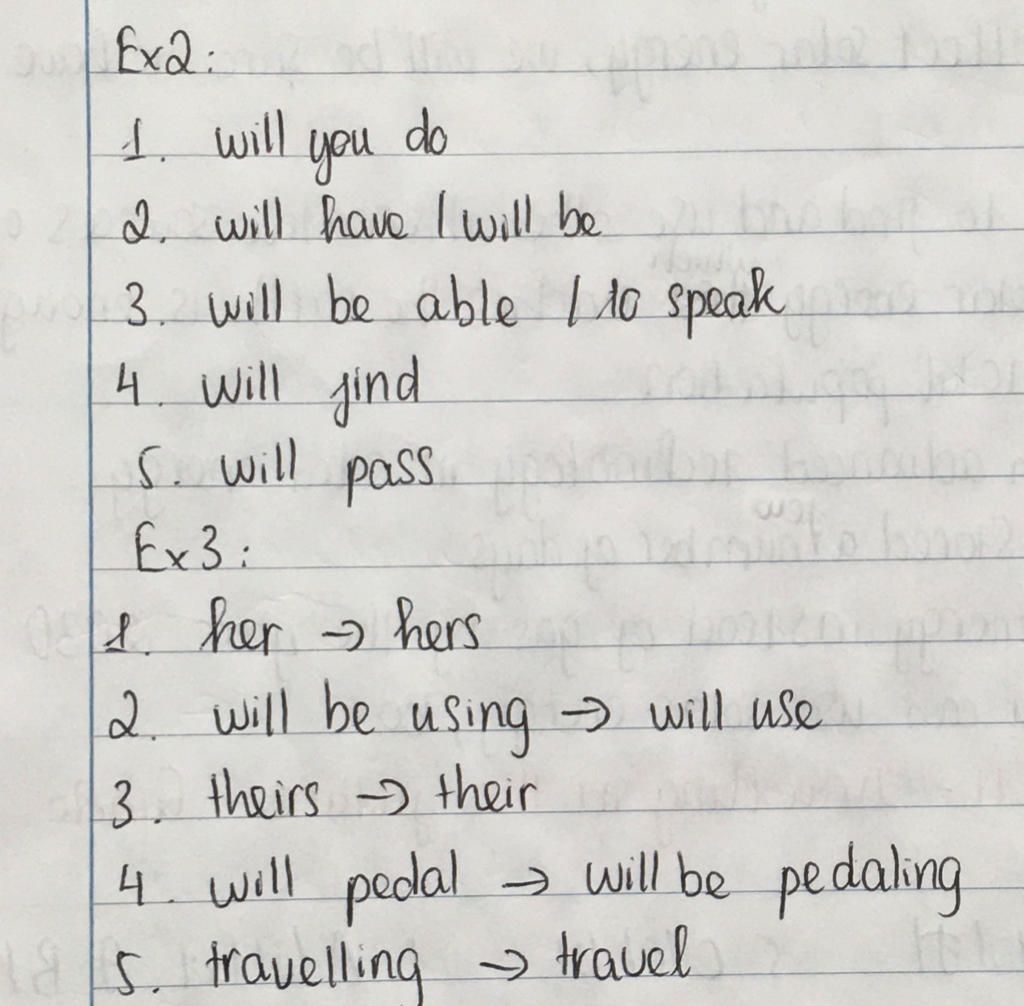 Ex2:
1. will you do
2. will have / will be
3. will be able / to speak
4. will find
5. will pass
Ex3:
1. her → hers
2. will be using → will use
3. theirs → their
4. will pedal → will be pedaling
5. travelling → travel